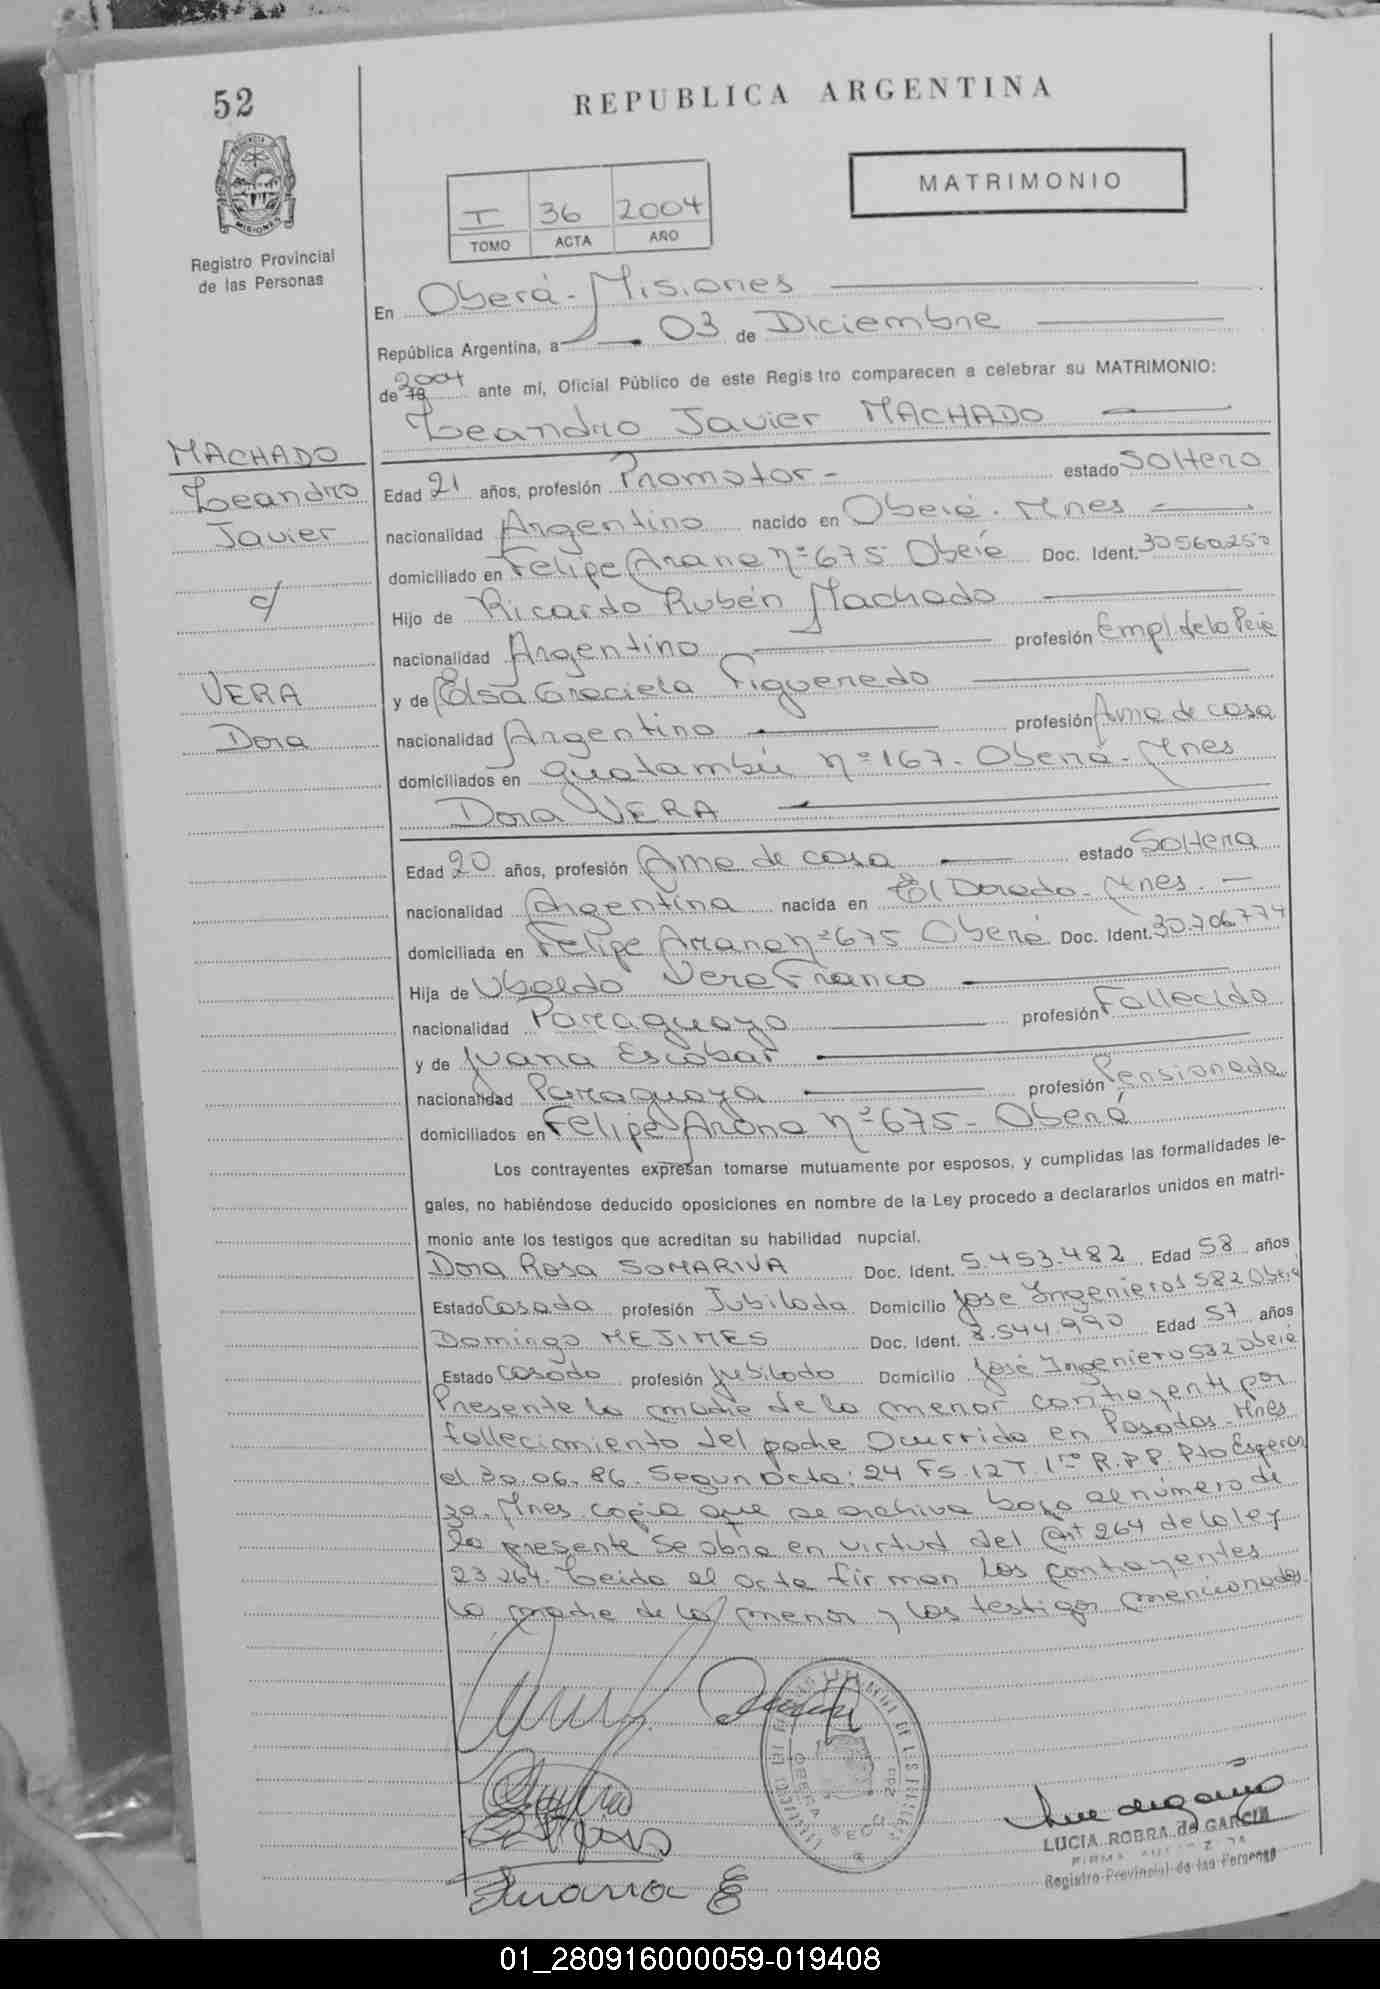 52
REPUBLICA ARGENTINA
MATRIMONIO
I 36 2004
TOMO ACTA AÑO
Registro Provincial
de las Personas
En Oberá - Misiones
República Argentina, a 03 de Diciembre
de 19 2004 ante mí, Oficial Público de este Registro comparecen a celebrar su MATRIMONIO:
Leandro Javier MACHADO
MACHADO
Leandro
Javier
c/
VERA
Dora
Edad 21 años, profesión Promotor - estado Soltero
nacionalidad Argentino nacido en Oberá - Mnes
domiciliado en Felipe Arana nº 675 Oberá Doc. Ident. 30560250
Hijo de Ricardo Rubén Machado
nacionalidad Argentino profesión Empl de la Pcia
y de Elsa Graciela Figueredo
nacionalidad Argentina profesión Ama de casa
domiciliados en guatambú nº 167 - Oberá - Mnes
Dora VERA
Edad 20 años, profesión Ama de casa estado Soltera
nacionalidad Argentina nacida en El Dorado - Mnes. -
domiciliada en Felipe Arana nº 675 Oberá Doc. Ident. 30.706.774
Hija de Ubaldo Vera Franco
nacionalidad Paraguayo profesión Fallecido
y de Juana Escobar
nacionalidad Paraguaya profesión Pensionada
domiciliados en Felipe Arana nº 675 - Oberá
Los contrayentes expresan tomarse mutuamente por esposos, y cumplidas las formalidades le-
gales, no habiéndose deducido oposiciones en nombre de la Ley procedo a declararlos unidos en matri-
monio ante los testigos que acreditan su habilidad nupcial.
Dora Rosa SOMARIVA Doc. Ident. 5.453.482 Edad 58 años
Estado Casada profesión Jubilada Domicilio José Ingenieros 582 Oberá
Domingo MEJIMES Doc. Ident. 8.544.990 Edad 57 años
Estado Casado profesión Jubilado Domicilio José Ingeniero 532 Oberá
Presente la madre de la menor contrayente por
fallecimiento del padre Ocurrido en Posadas - Mnes
el 30.06.86. Segun acta: 24 FS.12 T. 1ro R.P.P. Pto Esperan
za. Mnes. copia que se archiva bajo el número de
la presente se obra en virtud del Art 264 de la ley
23264. Leida el acta firman los contrayentes
la madre de la menor y los testigos mencionados.
Juana E
OBERA
SECC 2da
LUCIA ROBRA de GARCIA
Registro Provincial de las Personas
01_280916000059-019408